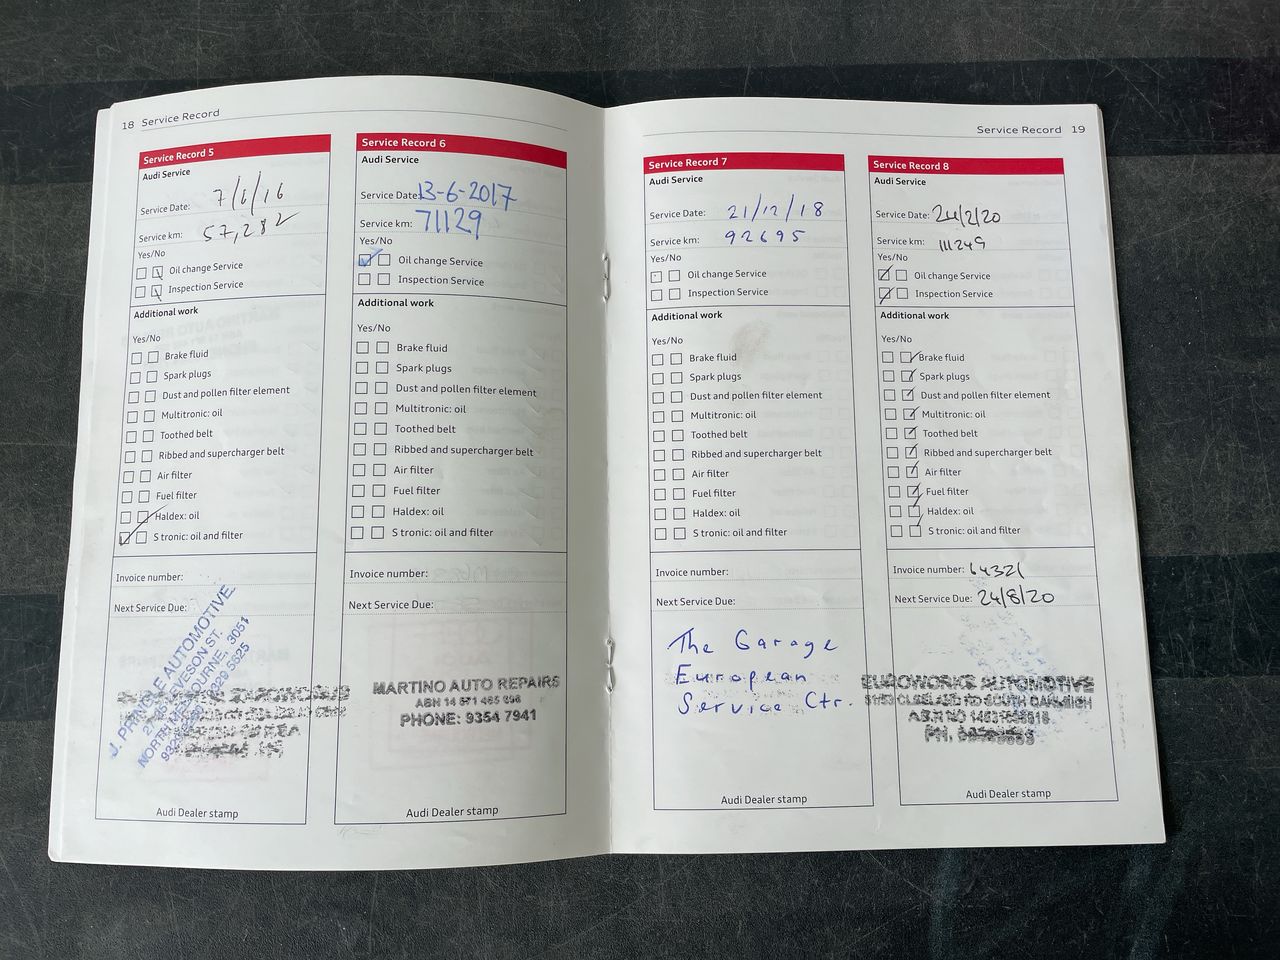 18 Service Record
Service Record 5
Audi Service
Service Date: 7/6/16
Service km: 57,282
Yes/No
Oil change Service
Inspection Service
Additional work
Yes/No
Brake fluid
Spark plugs
Dust and pollen filter element
Multitronic: oil
Toothed belt
Ribbed and supercharger belt
Air filter
Fuel filter
Haldex: oil
S tronic: oil and filter
Invoice number:
Next Service Due:
J. PRINGLE AUTOMOTIVE
NORTH MELBOURNE, 3051
Audi Dealer stamp
Service Record 6
Audi Service
Service Date: 13-6-2017
Service km: 71129
Yes/No
Oil change Service
Inspection Service
Additional work
Yes/No
Brake fluid
Spark plugs
Dust and pollen filter element
Multitronic: oil
Toothed belt
Ribbed and supercharger belt
Air filter
Fuel filter
Haldex: oil
S tronic: oil and filter
Invoice number:
Next Service Due:
MARTINO AUTO REPAIRS
ABN 14 571 465 898
PHONE: 9354 7941
Audi Dealer stamp
Service Record 19
Service Record 7
Audi Service
Service Date: 21/12/18
Service km: 92695
Yes/No
Oil change Service
Inspection Service
Additional work
Yes/No
Brake fluid
Spark plugs
Dust and pollen filter element
Multitronic: oil
Toothed belt
Ribbed and supercharger belt
Air filter
Fuel filter
Haldex: oil
S tronic: oil and filter
Invoice number:
Next Service Due:
The Garage
European
Service Ctr.
Audi Dealer stamp
Service Record 8
Audi Service
Service Date: 24/2/20
Service km: 111249
Yes/No
Oil change Service
Inspection Service
Additional work
Yes/No
Brake fluid
Spark plugs
Dust and pollen filter element
Multitronic: oil
Toothed belt
Ribbed and supercharger belt
Air filter
Fuel filter
Haldex: oil
S tronic: oil and filter
Invoice number: 64321
Next Service Due: 24/8/20
EUROWORKS AUTOMOTIVE
PH.
Audi Dealer stamp